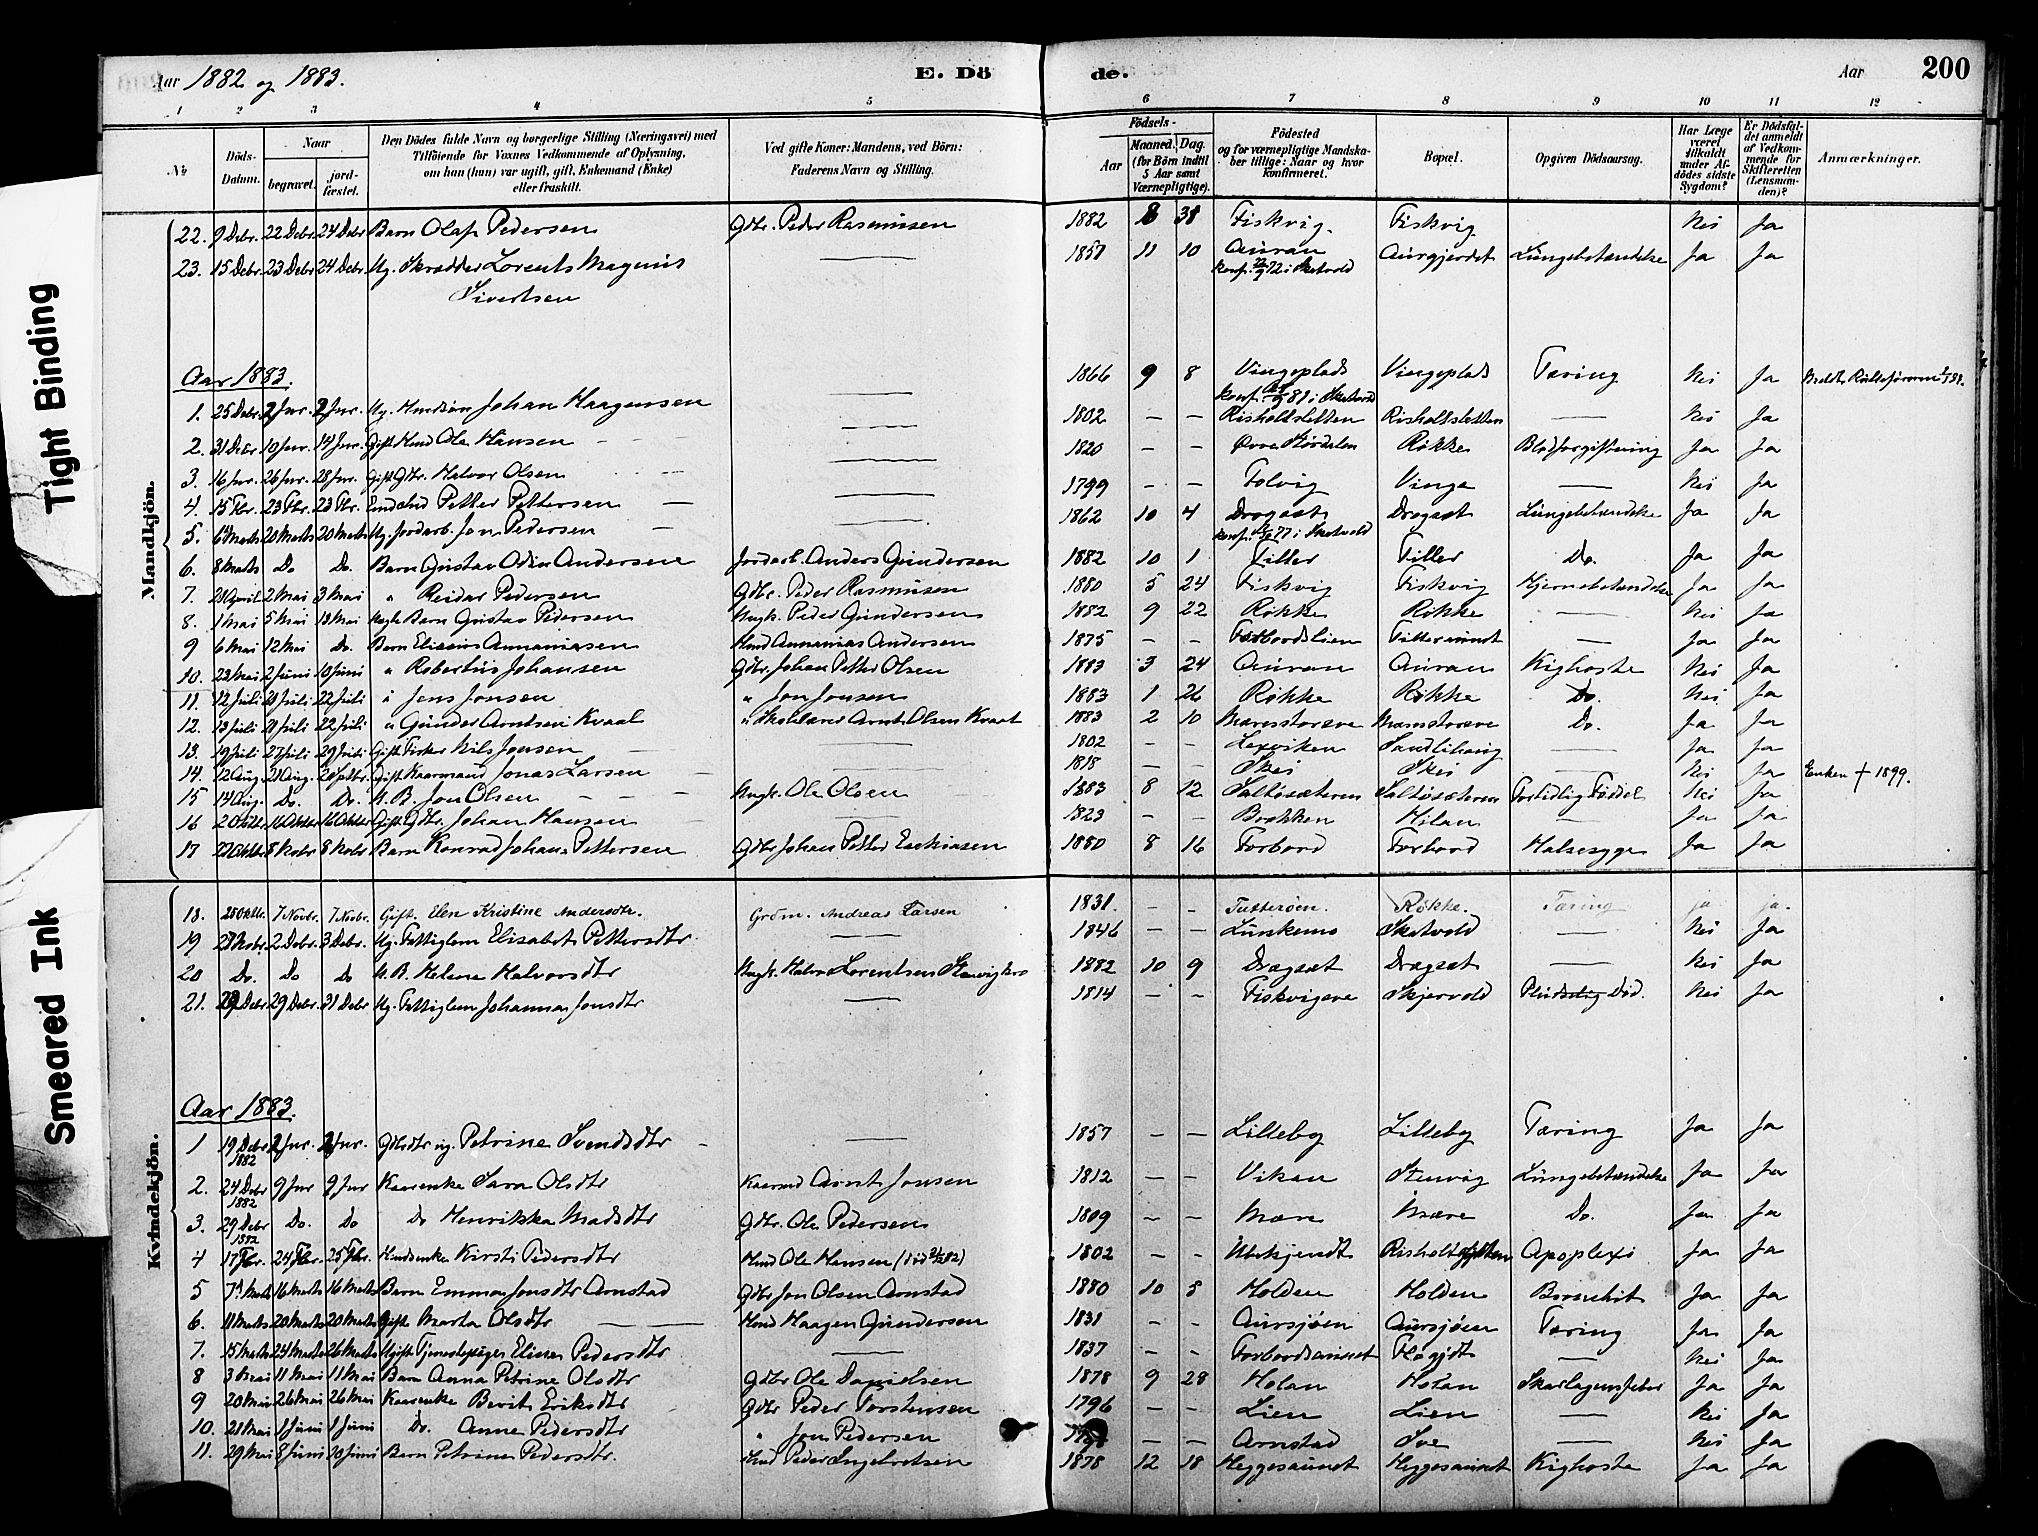 Aar 1882 og 1883. E. Dö de. Aar 200
1 2 3 4 5 6 7 8 9 10 11 12
No Döds-Datum. Naar begravet. jordfæstet. Den Dödes fulde Navn og borgerlige Stilling (Næringsvei) med Tilföiende for Voxnes Vedkommende af Oplysning, om han (hun) var ugift, gift, Enkemand (Enke) eller fraskilt. Ved gifte Koner: Mandens, ved Börn: Faderens Navn og Stilling. Födsels- Aar Maaned. Dag. (for Börn indtil 5 Aar samt Værnepligtige). Födested og for værnepligtige Mandskaber tillige: Naar og hvor Konfirmeret. Bopæl. Opgiven Dödsaarsag. Har Læge været tilkaldt under Afdödes sidste Sygdom? Er Dödsfaldet anmeldt af Vedkommende for Skifteretten (Lensmanden)? Anmærkninger.
Mandkjön.
22. 9 Debr. 22 Debr. 24 Debr Barn Olaf Pedersen Gdbr. Peder Rasmusen 1882 38 Fiskvig. Fiskvig Nei Ja
23. 15 Debr. 23 Debr 24 Debr. Ug. Skrædder Lorents Magnus 1857 11 10 Auran Aurgjerdet Lungebetændelse Ja Ja
Sivertsen konf. 72 i Skatvold
Aar 1883.
1. 25 Debr. 2 Jnr. 2 Jnr. Ug. Johan Haagensen 1866 9 8 Vingeplads Vingeplads Tæring Nei Ja
konf. 81 i Skatvold
2. 31 Debr 10 Jnr. 14 Jnr. Gift Hmd Ole Hansen 1802 — — Risholtsletten Risholtsletten — Nei Ja
3. 16 Jnr. 26 Jnr. 28 Jnr. Gift Gdbr. Halvor Olsen 1820 — — Øvre Størdalen Røkke Blodforgiftning Ja Ja
4. 15 Fbr. 23 Fbr. 23 Fbr. Petter Pettersen 1799 — — Folvig Vinge — Nei Ja
5. 6 Marts 20 Marts 20 Marts Ug. Jordarb. Jon Pedersen 1862 10 4 Dragsæt Dragsæt Lungebetændelse Ja Ja
konf. 77 i Skatvold
6. 8 Marts Do Do. Barn Gustav Odin Andersen Jordarb. Anders Gundersen 1882 10 1 Filler Filler Do. Ja Ja
7. 2 Mai 3 Mai " Reidar Pedersen Gdbr. Peder Rasmusen 1880 5 24 Fiskvig Fiskvig Hjernebetændelse Ja Ja
8. 1 Mai 5 Mai 13 Mai Barn Gustav Pedersen Ungk. Peder Gundersen 1882 9 22 Røkke Røkke — Nei Ja
9 6 Mai 12 Mai Do. Barn Elisæus Annaniasen Hmd Annanias Andersen 1875 — — Forbordslien — Ja Ja
10. 22 Mai 2 Juni 10 Juni " Robertus Johansen Gdbr. Johan Petter Olsen 1883 3 24 Auran Auran Kighoste Nei Ja
11. 12 Juli 21 Juli 22 Juli " Jens Jonsen " Jon Jonsen 1883 1 26 Røkke Røkke Do. Nei Ja
12. 13 Juli 21 Juli 22 Juli " Gunder Arntsen Kvaal " Skolelærer Arnt Olsen Kvaal 1883 2 10 Do. Ja Ja
13. 19 Juli 27 Juli 29 Juli Gift Fisker Nils Jonsen 1802 — — Lexviken Sandlihaug — Ja Ja
14. 12 Aug. 21 Aug. Gift Kaarmand Jonas Larsen 1818 — — Skei Skei — Nei Ja Enken † 1899.
15 14 Aug. Do. Do. U. B. Jon Olsen Ungk. Ole Olsen 1883 8 12 Saltøsæteren Saltøsæteren Fortidlig Føddt Nei Ja
16 16 Oktbr 16 Oktbr Gift Gdbr. Johan Hansen 1823 — — Brokken Hilan — Ja Ja
17 8 8 Barn Konrad Johan Pettersen Gdbr Johan Petter Esekiasen 1880 8 16 Forbord Forbord Halsesyge Ja Ja
Kvindekjön.
18. 25 Oktbr. 7 Novbr. 7 Novbr. Gift. Elen Kristine Andersdtr. Andreas Larsen 1831. — — Tutterøen. Røkke. Tæring ja ja.
19 2 Debr. 3 Debr. Ug. Fattiglem Elisabet Pettersdtr. 1846 — — Skatvold — Nei Ja
20 Do. Do Do U. B. Helene Halvorsdtr Ungk. Halvor Lorentsen 1882 10 9 Dragsæt Dragsæt — Nei Ja
21. 29 Debr. 31 Debr Ug. Fattiglem Johanna Jonsdtr 1814 — — Skjervold Pludselig Død. Nei Ja
Aar 1883.
1 19 Debr 1882 2 Jnr. 2 Jnr. Gdbdtr ug. Petrine Svendsdtr 1857 — — Lilleby Lilleby Tæring Ja Ja
2. 24 Debr 1882 9 Jnr 9 Jnr Kaarenke Sara Olsdtr Kaarmd Arnt Jonsen 1812 — — Vikan Stenvig Lungebetændelse Ja Ja
3. 29 Debr 1882 Do. Do Do Henrikka Madsdtr Gdbr. Ole Pedersen 1809 — — Mære Mære Do. Ja Ja
4 17 Fbr. 24 Fbr. 25 Fbr. Husenke Kirsti Pedersdtr Hmd Ole Hansen 1802 — — Ubekjendt Apoplexi Ja Ja
5 7 Marts 16 Marts 16 Marts Barn Emma Jonsdtr Arnstad Gdbr Jon Olsen Arnstad 1880 10 5 Holden Holden Ja Ja
6. 11 Marts 20 Marts 20 Marts Gift Marta Olsdtr Hmd Haagen Gundersen 1831 — — Aursjøen Aursjøen Tæring Ja Ja
7. 15 Marts 24 Marts 26 Marts Ugift Tjenestepige Elina Pedersdtr 1837 — — Forbordsaunet — Nei Ja
8 3 Mai 11 Mai 11 Mai Barn Anna Petrine Olsdtr Gdbr Ole Danielsen 1878 9 28 Holan Holan Skarlagensfeber Ja Ja
9 20 Mai 26 Mai 26 Mai Kaarenke Berit Eriksdtr Gdbr Peder Torstensen 1796 — — Lien Lien — Nei Ja
10. 21 Mai 1 Juni 1 Juni Do. Anne Pedersdtr " Jon Pedersen — — Arnstad Sve — Nei Ja
11. 29 Mai 8 Juni 10 Juni Barn Petrine Pedersdtr. Hmd Peder Ingebretsen 1878 12 18 Heggesaunet Heggesaunet Kighoste Ja Ja
Tight Binding
Smeared Ink